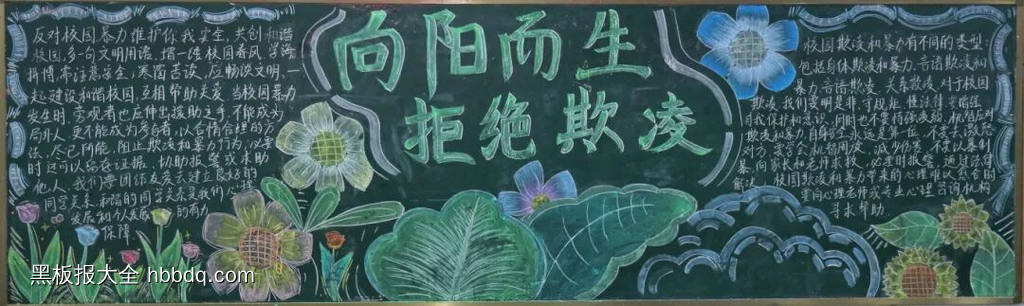 向阳而生
拒绝欺凌
反对校园暴力维护你我安全,共创和谐
校园,多一句文明用语,增一浩校园春风,学海
拼博,希注意安全,寒窗苦读,应畅谈文明,一
起建设和谐校园,互相帮助关爱,当校园暴力
发生时,旁观者也应伸出援助之手,不能成为
局外人,更不能成为参与者,以合情合理的方
法,尽已所能,阻止欺凌和暴力行为,必要
时还可以留存证据,切助报警或求助
他人,我们要团结友爱去建立良好的
同学关系,和谐的同学关系是我们心
发展和个人发展的有力
保障
校园欺凌和暴力有不同的类型
包括身体欺凌和暴力,言语欺凌和
暴力言语欺凌,关系欺凌,对于校园
欺凌,我们要明是非,守规矩,懂法律
自我保护意识,同时也不要恃强凌弱
欺凌和暴力,自身安全永远是第一位,不要去激怒
对方,要学会机智周旋,减少伤害,不要以暴制
暴,向家长和老师求救,必要时报警,通过法律
解
校园欺凌和暴力带来的心理
要向心理老师或专业心理咨询机构
寻求帮助
黑板报大全 hbbdq.com